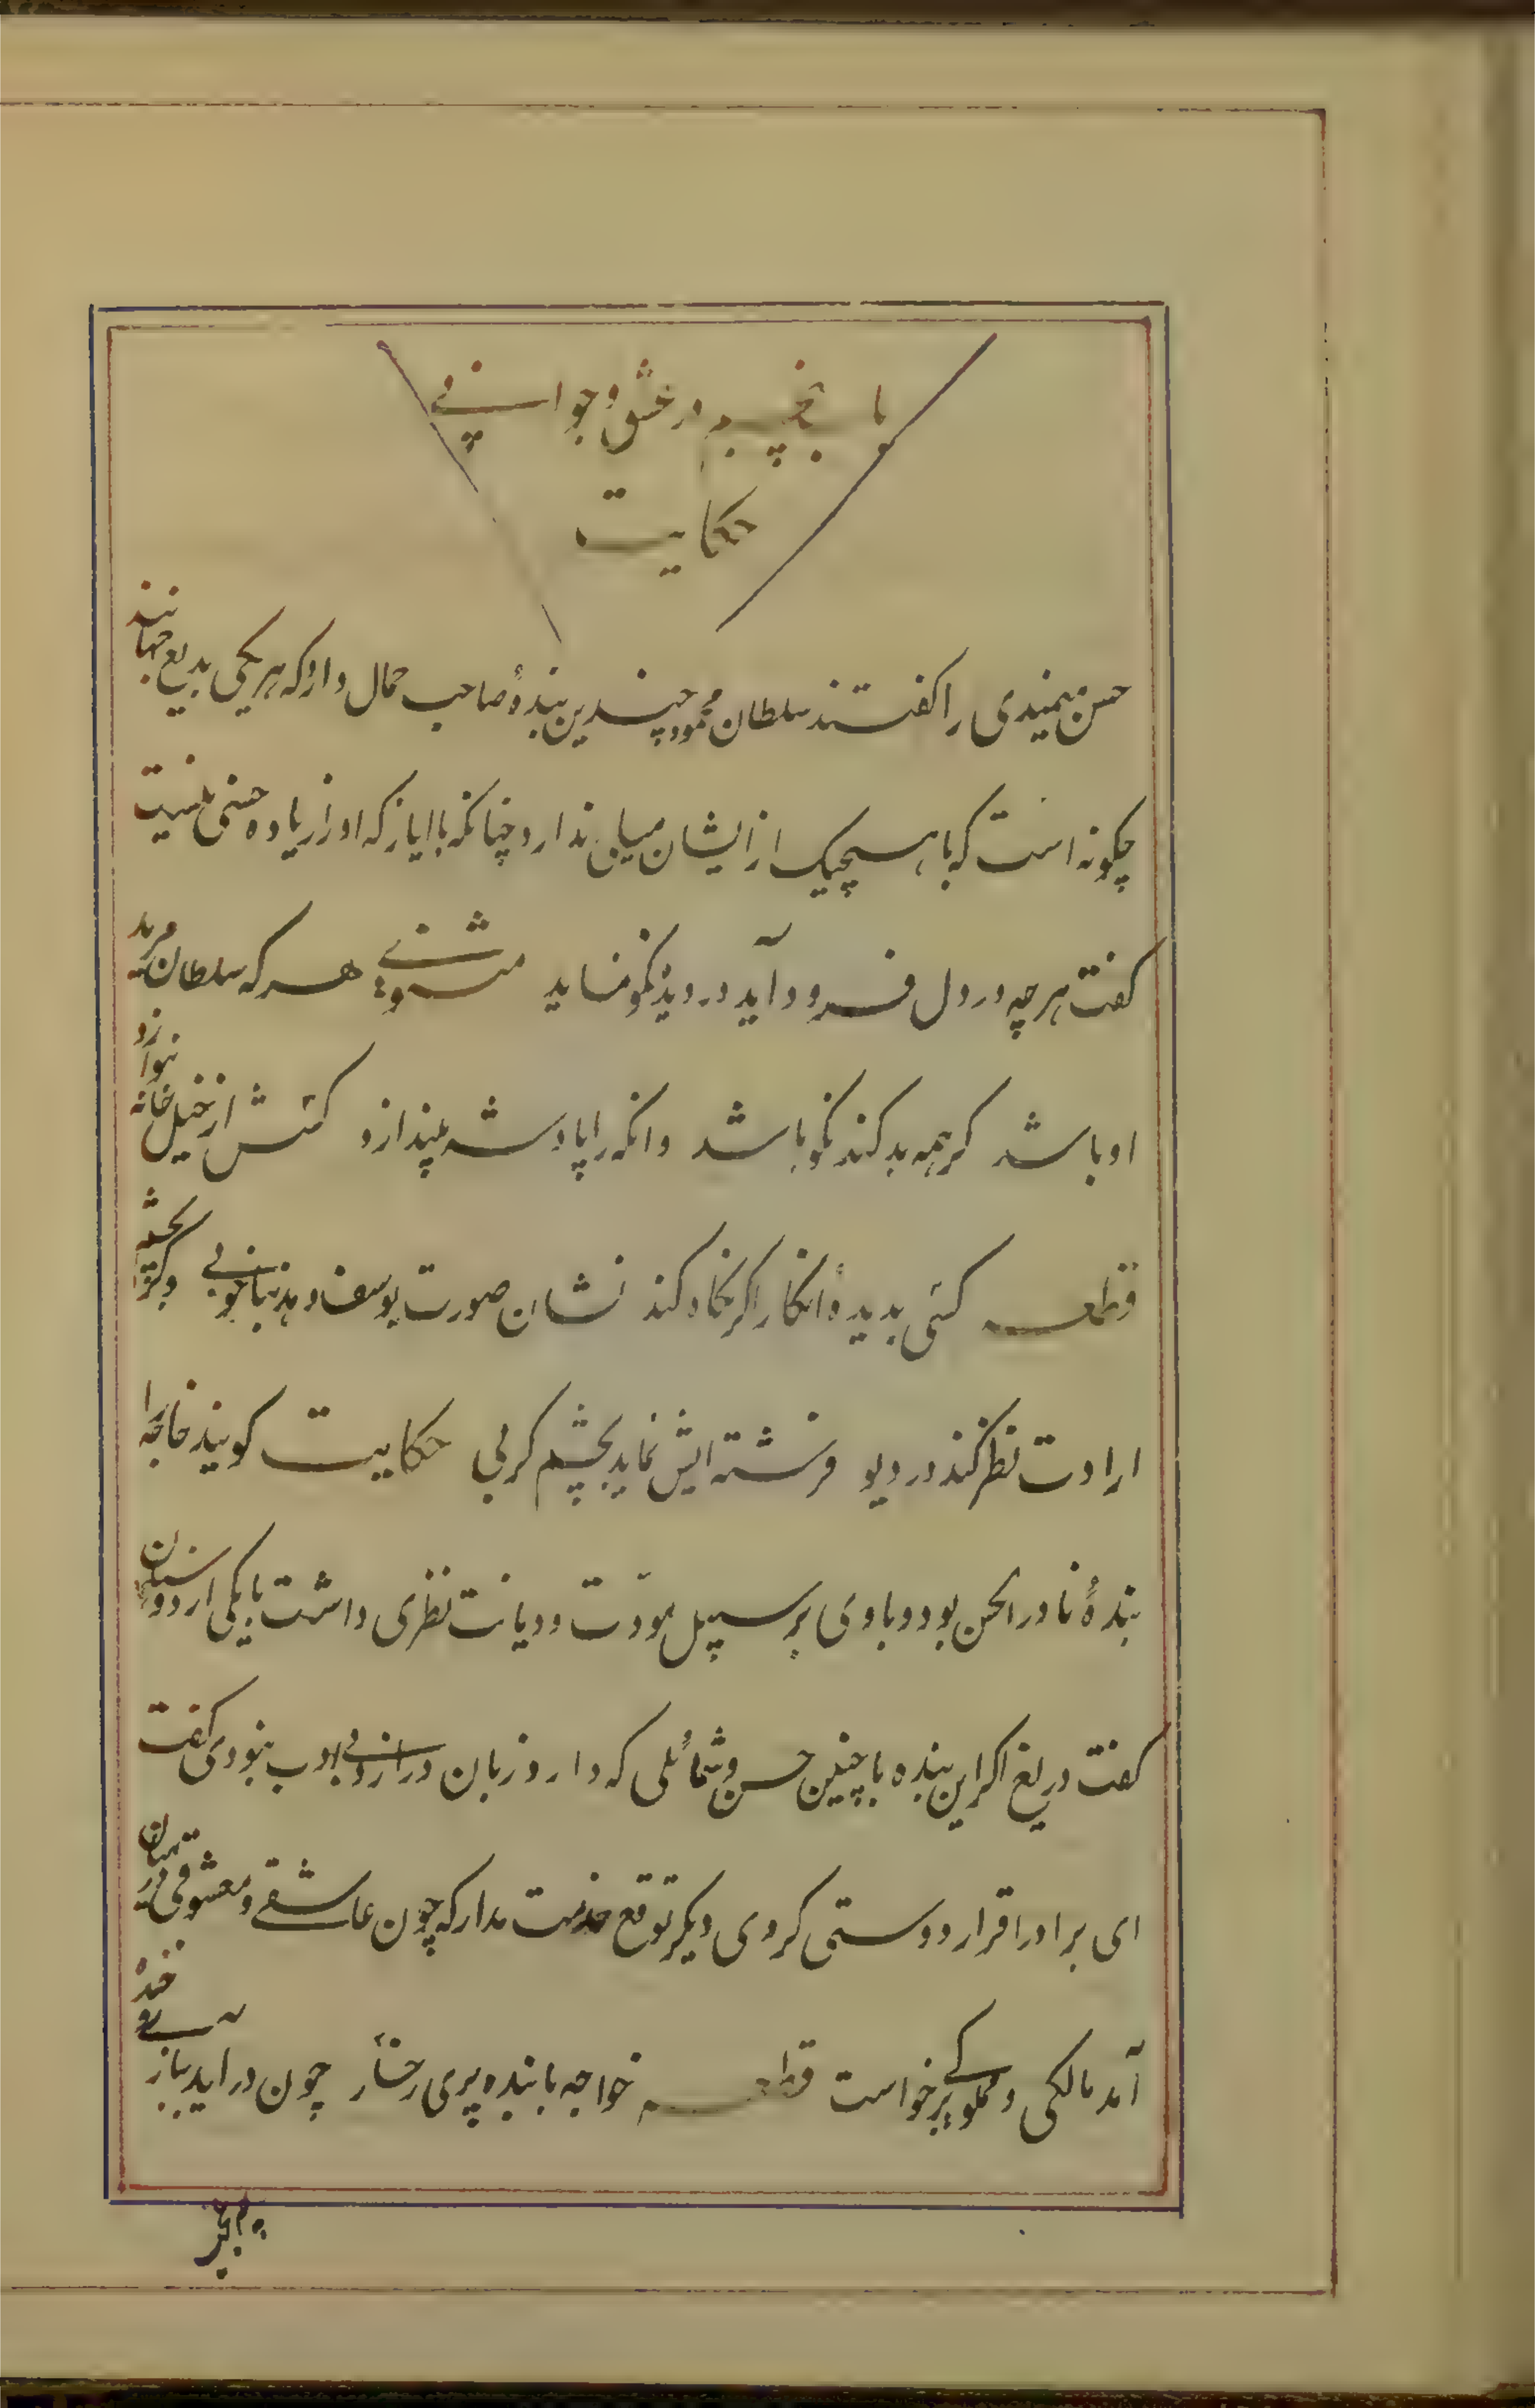 باب پنجم در عشق و جوانی
حکایت
حسن میمندی را کفتند سلطان محمود چندین بندهٔ صاحب جمال دارد که هر یکی بدیع جهانند
چکونه است که با هیچیک از ایشان میلی ندارد چنانکه با ایاز که او را زیاده حسنی نیست
کفت هر چه در دل فرود آید در دیده نکو نماید مثنوی هر که سلطان مرید
او باشد کر همه بد کند نکو باشد وانکه را پادشه بیندازد کسش از خیل خانه ننوازد
قطعه کسی بدیدهٔ انکار اکر نکاه کند نشان صورت یوسف دهد بناخوبی وکر بچشم
ارادت نظر کند در دیو فرشته ایش نماید بچشم کربی حکایت کویند خاجه را
بندهٔ نادر الحسن بود و با وی بر سبیل مودّت و دیانت نظری داشت با یکی از دوستان
کفت دریغ اکر این بنده با چنین حسن و شمائلی که دارد زبان درازی و بی ادب نبودی کفت
ای برادر اقرار دوستی کردی دیکر توقع خدمت مدار که چون عاشقی و معشوقی در میان
آمد مالکی و مملوکی برخواست قطعه خواجه با بنده پری رخسار چون در اید ببازی و خنده